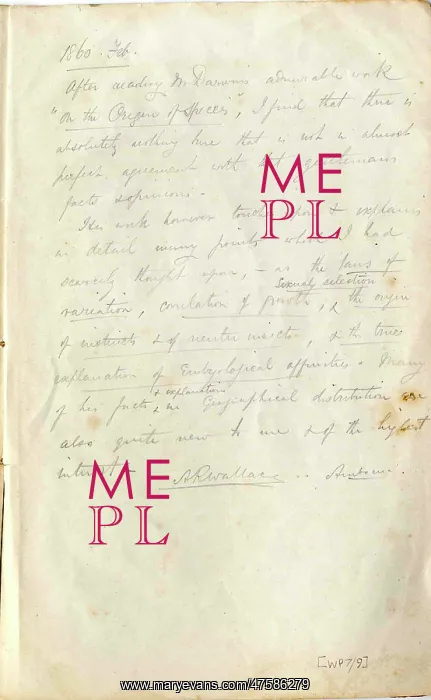 1860. Feb.
After reading Mr Darwin's admirable work
"On the Origin of Species", I find that there is
absolutely nothing here that is not in almost
perfect agreement with that gentlemans
facts & opinions.
His work however touches upon & explains
in detail many points which I had
scarcely thought upon, - as the laws of
variation, correlation of growth, sexual selection, & the origin
of instincts & of neuter insects, & the true
explanation of Embryological affinities. Many
of his facts & explanations in Geographical distribution are
also quite new to me & of the highest
interest
ARWallace .. Amboina.
ME
PL
ME
PL
[WP7/9]
www.maryevans.com/47586279